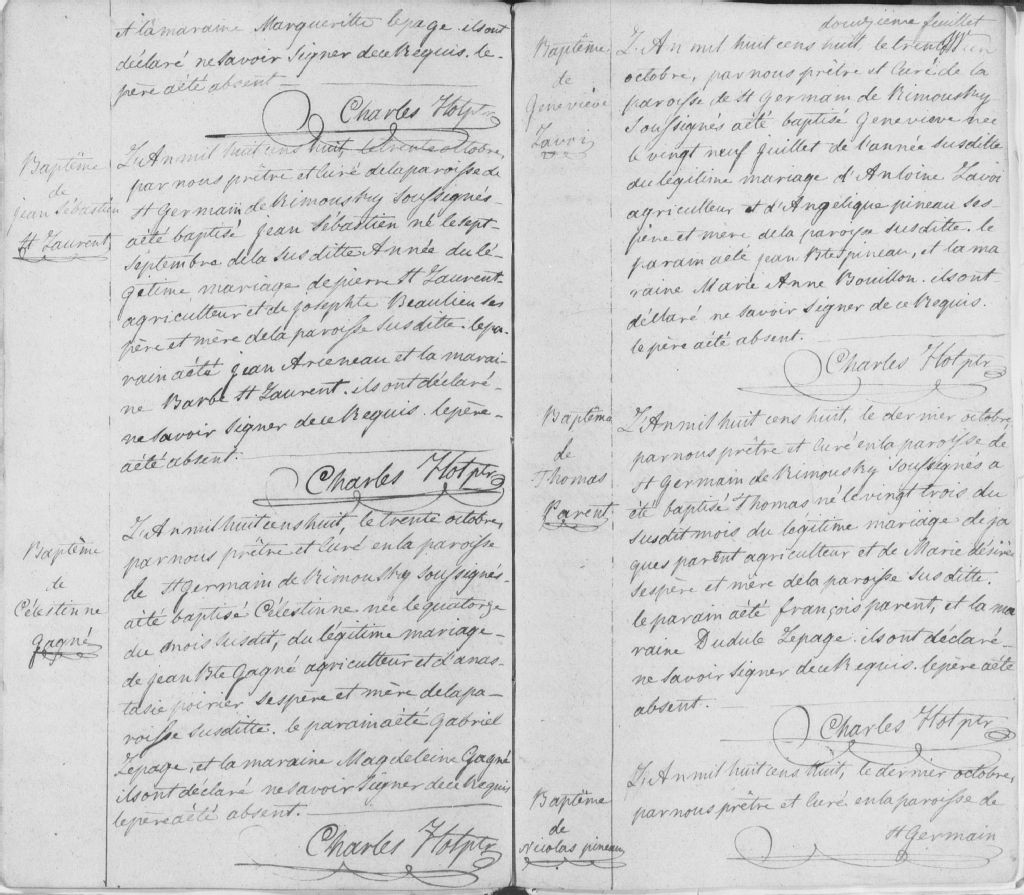 et la maraine Margueritte lepage. ils ont
déclaré ne savoir signer de ce Requis. le-
père aété absent
Charles Hot ptr
Baptême
de
jean Sébastien
St Laurent
L'An mil huit cens huit, le trente octobre,
par nous prêtre et Curé de la paroisse de
St Germain de Rimousky soussignés-
aété baptisé jean Sébastien né le sept-
Septembre de la susditte Année du lé-
getime mariage de pierre St Laurent
agriculteur et de josephte Beaulieu ses
père et mère de la paroisse susditte. le pa-
rain aété jean Arceneau et la marai-
ne Barbe St Laurent. ils ont déclaré-
ne savoir signer de ce Requis. le père-
aété absent.
Charles Hot ptr
Baptême
de
Célestinne
gagné
L'An mil huit cens huit, le trente octobre,
par nous prêtre et Curé en la paroisse
de St Germain de Rimousky soussignés-
aété baptisé Célestinne née le quatorze
du mois susdit, du légitime mariage-
de jean Bte Gagné agriculteur et d'anas-
tasie poirier ses père et mère de la pa-
roisse susditte. le parain aété Gabriel
Lepage, et la maraine Magdeleine Gagné
ils ont déclaré ne savoir signer de ce Requis
le père aété absent.
Charles Hot ptr
douzième feuillet
Baptême
de
Geneviève
Lavoi
L'An mil huit cens huit, le trente un
octobre, par nous prêtre et Curé de la
paroisse de St Germain de Rimousky
soussignés aété baptisé Geneviève née
le vingt neuf juillet de l'année susditte
du légitime mariage d'Antoine Lavoi
agriculteur et d'Angelique pineau ses-
père et mère de la paroisse susditte. le
parain aété jean Bte pineau, et la ma
raine Marie Anne Bouillon. ils ont-
déclaré ne savoir signer de ce Requis.
le père aété absent.
Charles Hot ptr
Baptême
de
Thomas
Parent
L'An mil huit cens huit, le dernier octobre
par nous prêtre et Curé en la paroisse de
St Germain de Rimousky soussignés a
été baptisé Thomas né le vingt trois du
susdit mois du legitime mariage de ja
ques parent agriculteur et de Marie désiré
ses père et mère de la paroisse susditte.
le parain aété françois parent, et la ma
raine Dudule Lepage. ils ont déclaré-
ne savoir signer de ce Requis. le père aété
absent.
Charles Hot ptr
Baptême
de
Nicolas pineau
L'An mil huit cens huit, le dernier octobre,
par nous prêtre et Curé en la paroisse de
St Germain